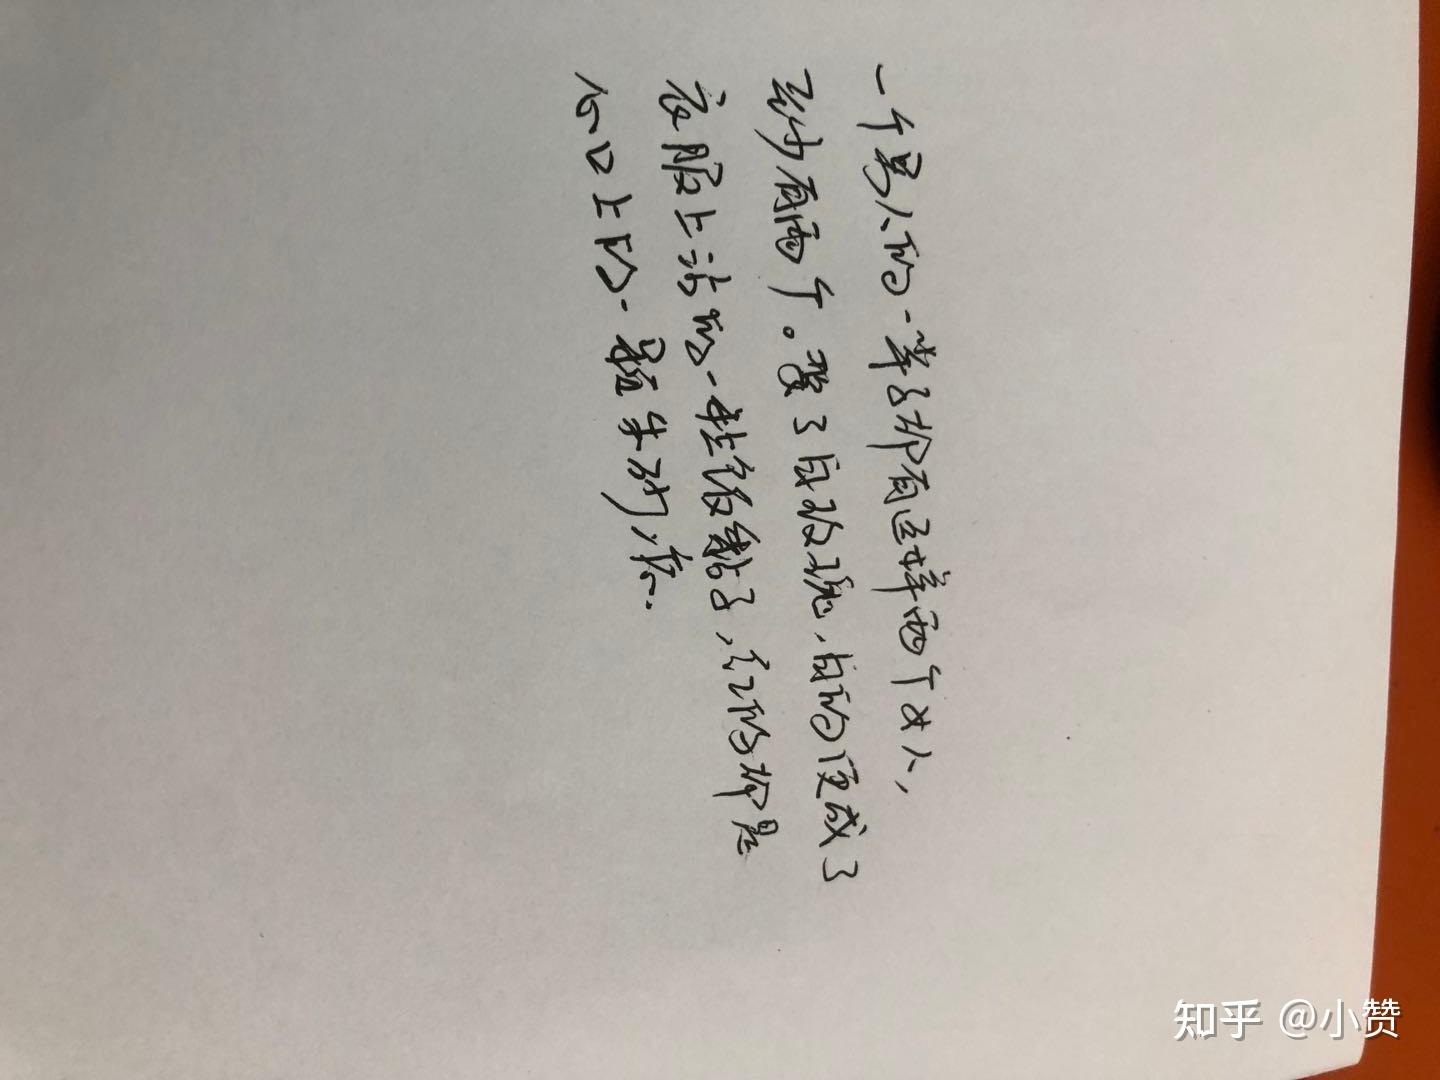 一个男人的一辈子都有这样两个女人,
至少有两个。娶了白玫瑰,白的便成了
衣服上沾的一粒饭黏子,红的却是
心口上的一颗朱砂痣.
知乎 @小赞